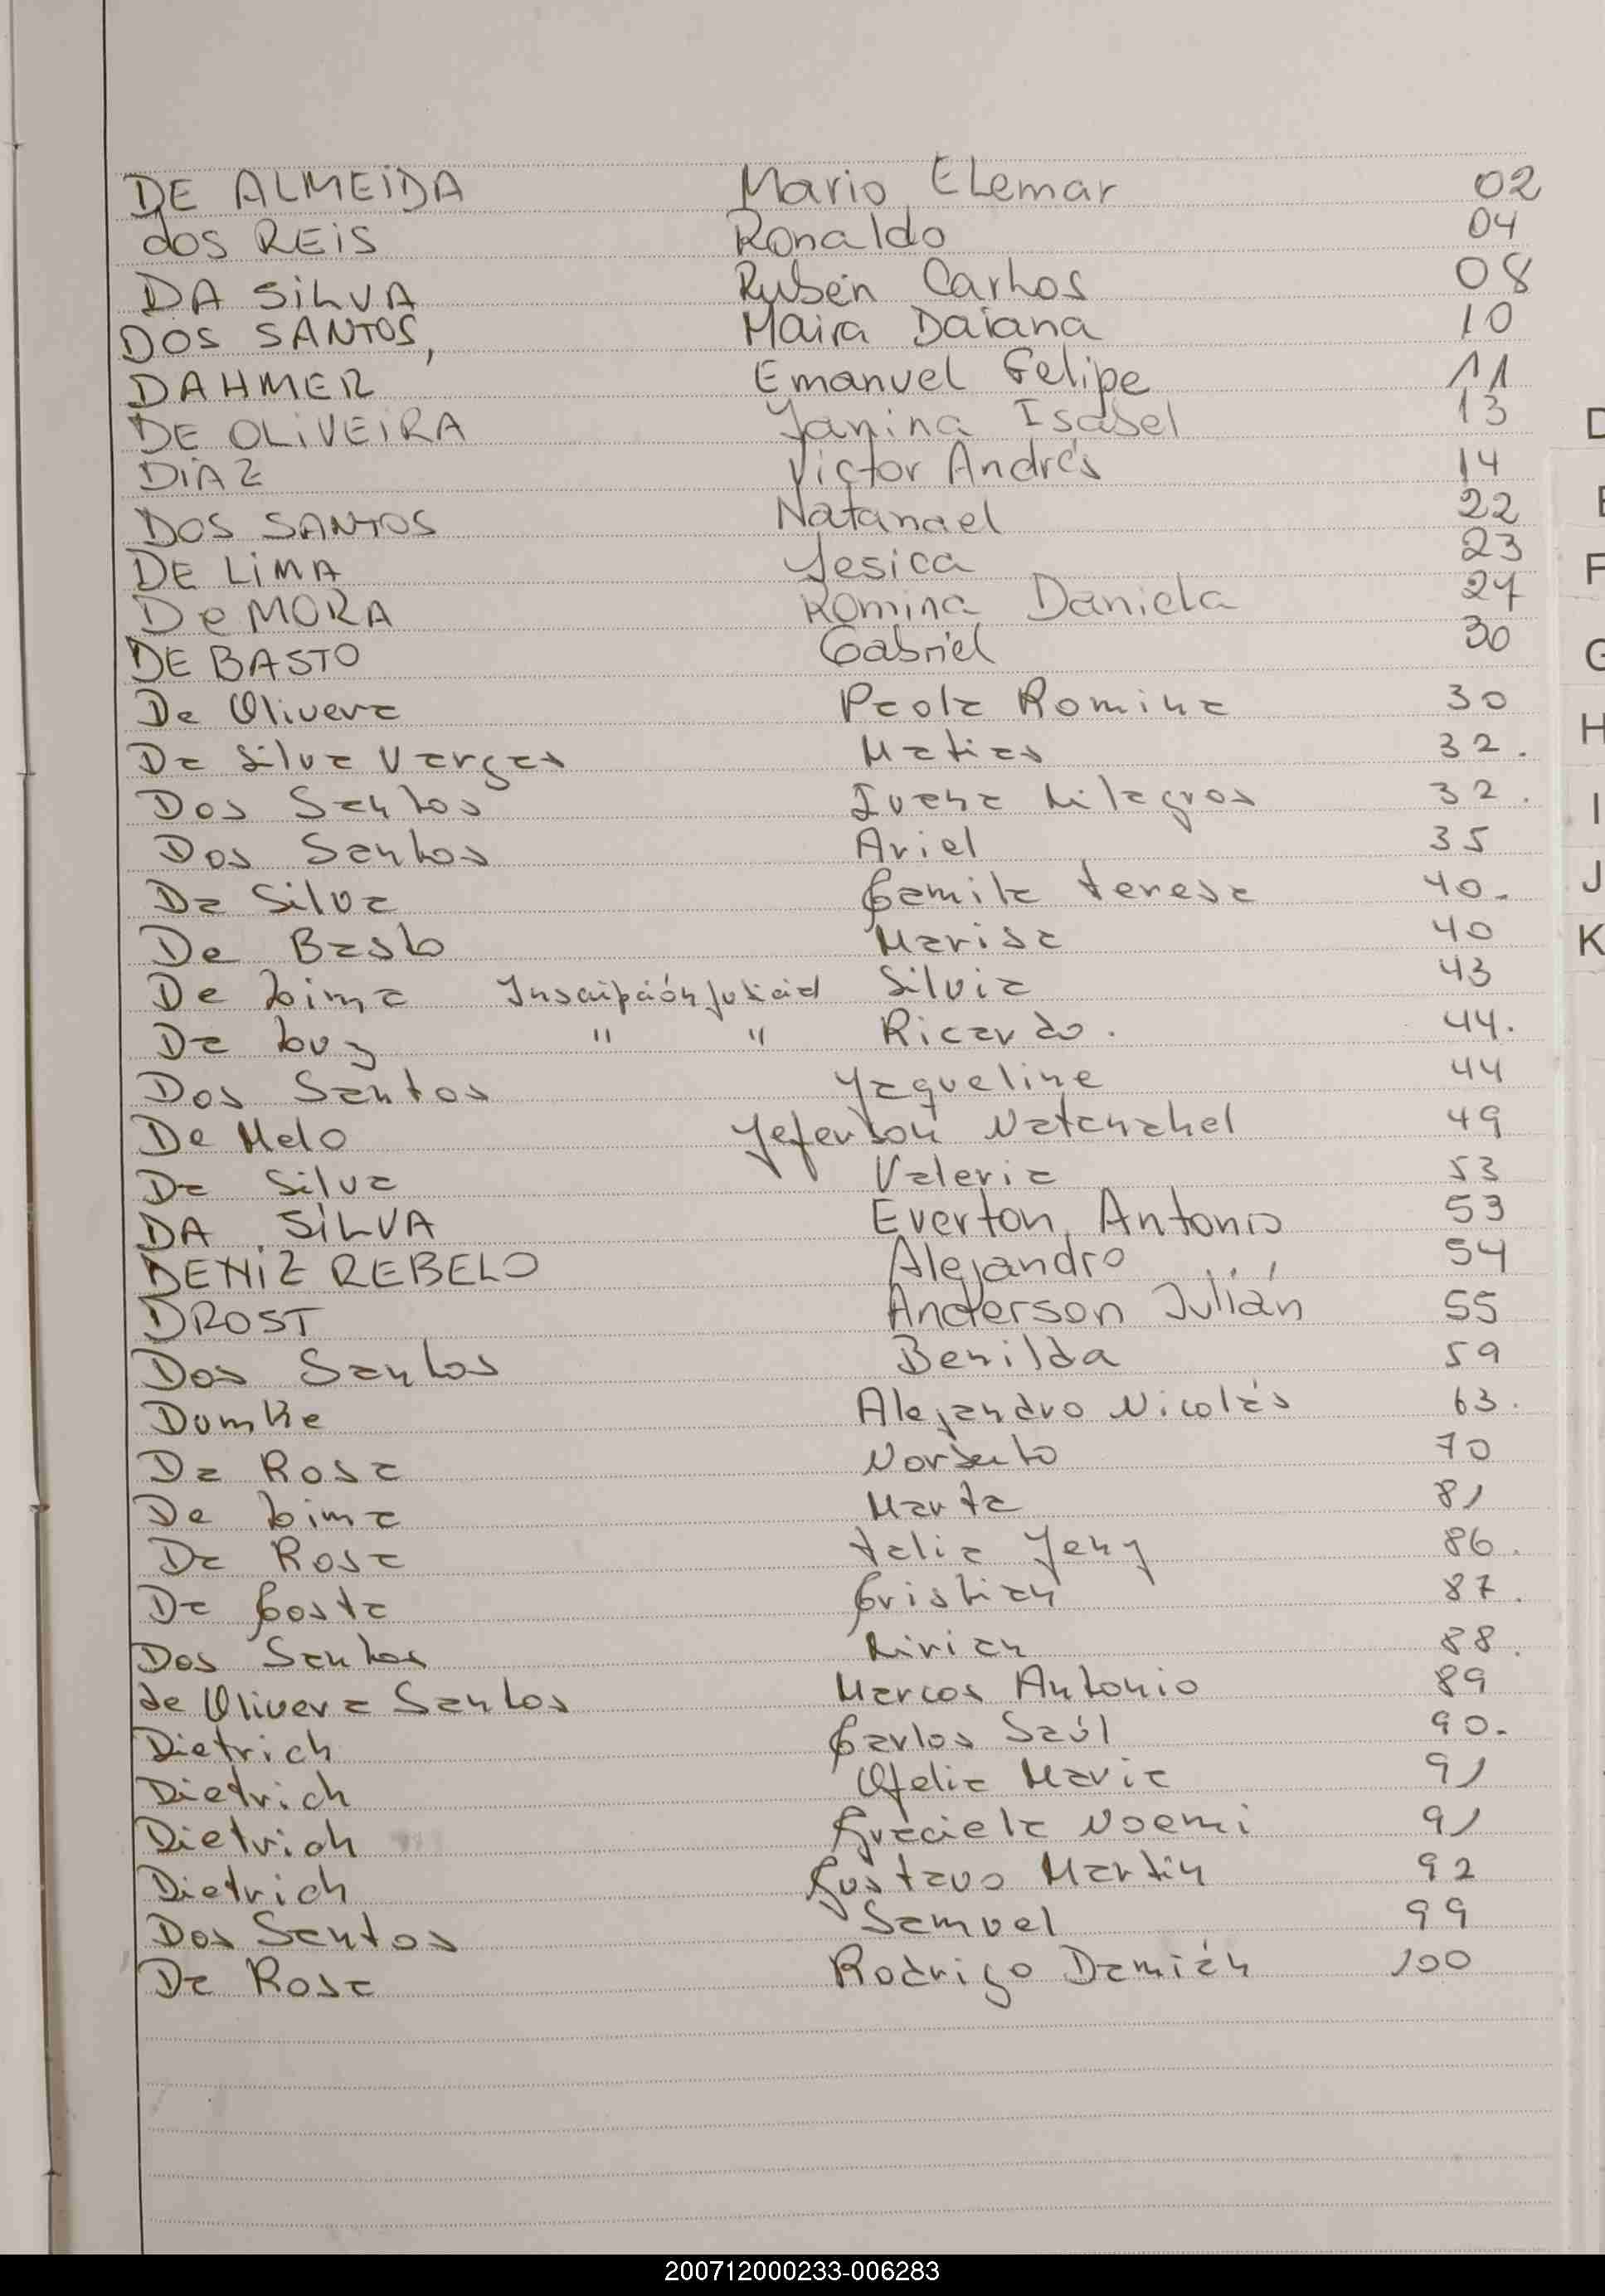 DE ALMEIDA Mario Elemar 02
dos REIS Ronaldo 04
DA SILVA Rubén Carlos 08
DOS SANTOS, Maira Daiana 10
DAHMER Emanuel Felipe 11
DE OLIVEIRA Yanina Isabel 13
DIAZ Victor Andrés 14
DOS SANTOS Natanael 22
DE LIMA Yesica 23
De MORA Romina Daniela 27
DE BASTO Gabriel 30
De Olivera Paola Romina 30
Da Silva Vargas Matias 32.
Dos Santos Ivana Milagros 32.
Dos Santos Ariel 35
Da Silva Camila Teresa 40.
De Basto Marisa 40
De Lima Inscripción judicial Silvia 43
Da Luz " " Ricardo. 44.
Dos Santos Yaqueline 44
De Melo Yeferson Natanahel 49
Da Silva Valeria 53
DA SILVA Everton Antonio 53
DENIZ REBELO Alejandro 54
DROST Anderson Julián 55
Dos Santos Benilda 59
Dumke Alejandro Nicolás 63.
Da Rosa Norberto 70
De Lima Marta 81
Da Rosa Talia Yeny 86.
Da Costa Cristian 87.
Dos Santos Livian 88.
de Olivera Santos Marcos Antonio 89
Dietrich Carlos Saúl 90.
Dietrich Ofelia Maria 91
Dietrich Graciela Noemi 91
Dietrich Gustavo Martin 92
Dos Santos Samuel 99
Da Rosa Rodrigo Damián 100
D
E
F
G
H
I
J
K
200712000233-006283